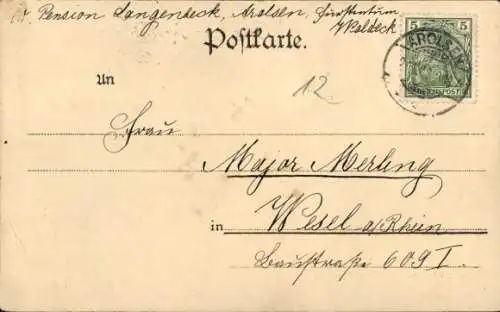 Pension Langenbeck, Arolsen, Fürstentum
Waldeck
Postkarte.
5 5
REICHSPOST
AROLSEN
An
12.
Frau
Major Merling
in Wesel a/Rhein
Baustraße 609 I.